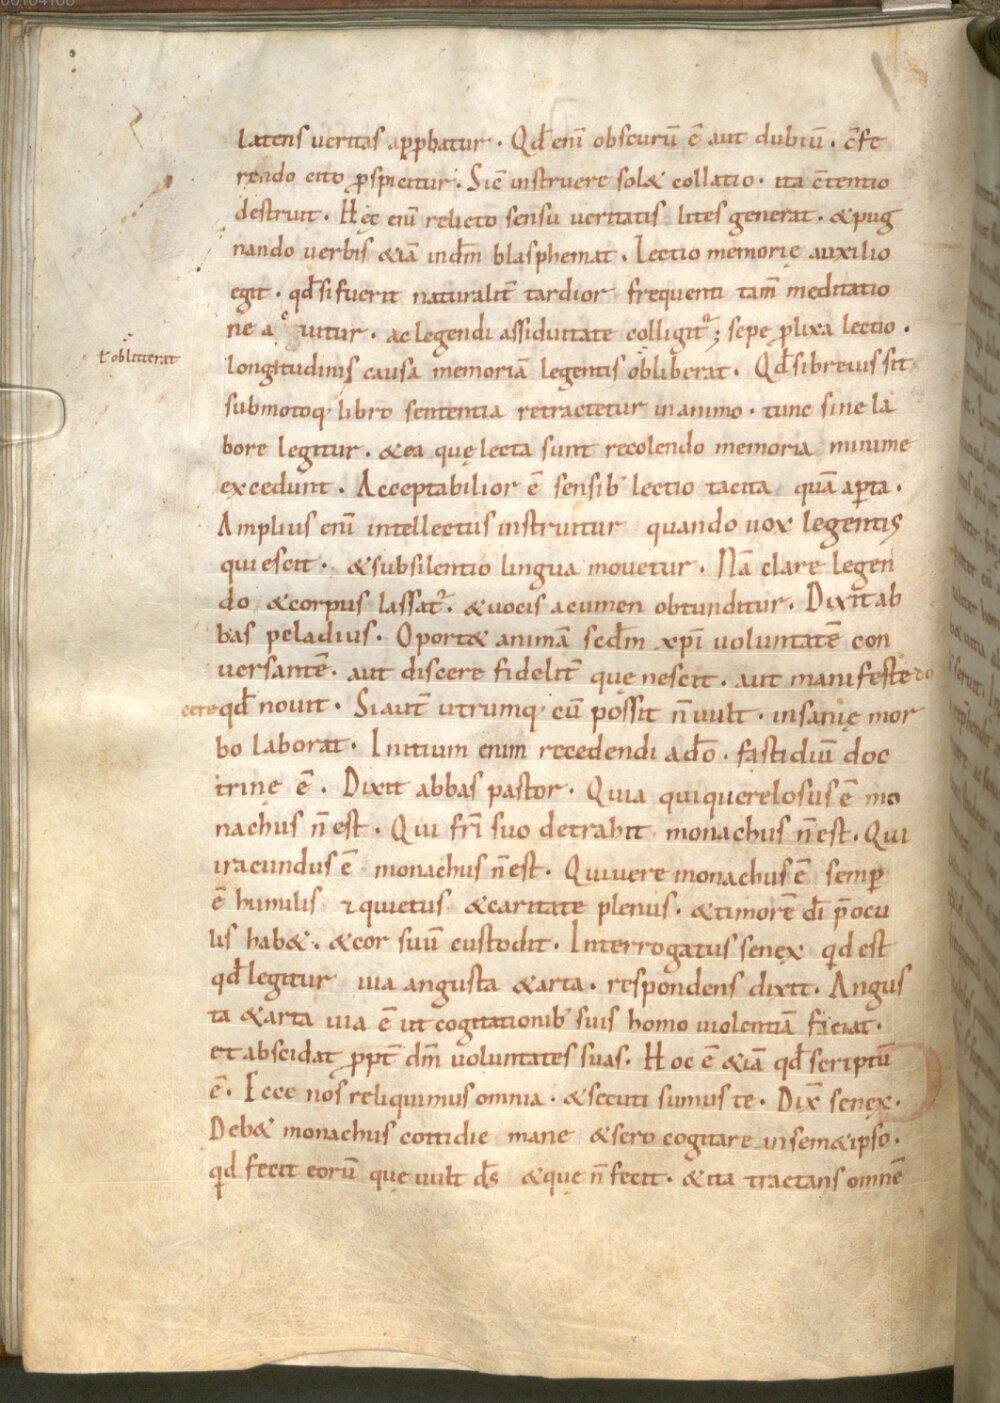 00104168
latens ueritas app̱batur. Qđ eni̅ obscuru̅ e̅ aut dubiu̅. c̅fe
rendo cito ꝑspicitur. Sic̅ instruere sol& collatio. ita c̅tentio
destruit. Hęc eni̅ relicto sensu ueritatis lites generat. &pug
nando uerbis &ia̅ indm̅ blasphemat. Lectio memorię auxilio
egit. qđsifuerit naturalit̅ tardior frequenti tam̅ meditatio
ne acuitur. ac legendi assiduitate colligit᷑; sepe ꝓlixa lectio.
ł obliterat
longitudinis causa memoria̅ legentis obliberat. Qđsibreuis sit
submotoq; libro sententia retractetur inanimo. tunc sine la
bore legitur. &ea quę lecta sunt recolendo memoria minime
excedunt. Acceptabilior e̅ sensib; lectio tacita qua̅ aꝑta.
Amplius eni̅ intellectus instruitur quando uox legentis
quiescit. &subsilentio lingua mouetur. Na̅ clare legen
do &corpus lassat᷑. &uocis acumen obtunditur. Dixit ab
bas peladius. Oport& anima̅ scdm̅ xp̅i uoluntate̅ con
uersante̅. aut discere fidelit̅ quę nescit. aut manifeste do
cere qđ nouit. Siaut̅ utrumq; cu̅ possit n̅ uult. insanię mor
bo laborat. Initium enim recedendi ado̅. fastidiu̅ doc
trinę e̅. Dixit abbas pastor. Quia quiquerelosus e̅ mo
nachus n̅ est. Qui fr̅i suo detrahit monachus n̅ est. Qui
iracundus e̅ monachus n̅ est. Quiuere monachus e̅ semꝑ
e̅ humilis ⁊ quietus &caritate plenus. &timore̅ di̅ p̅ ocu
lis hab&. &cor suu̅ custodit. Interrogatus senex qid est
qđ legitur uia angusta &arta. respondens dixit. Angus
ta &arta uia e̅ ut cogitationib; suis homo uiolentia̅ faciat.
et abscidat ꝓpt̅ dm̅ uoluntates suas. Hoc e̅ &ia̅ qđ scriptu̅
e̅. Ecce nos reliquimus omnia. &secuti sumus te. Dix̅ senex.
Deb& monachus cottidie mane &sero cogitare insem&ipso.
qid fecit eoru̅ quę uult ds̅ &quę n̅ fecit. &ita tractans omne̅